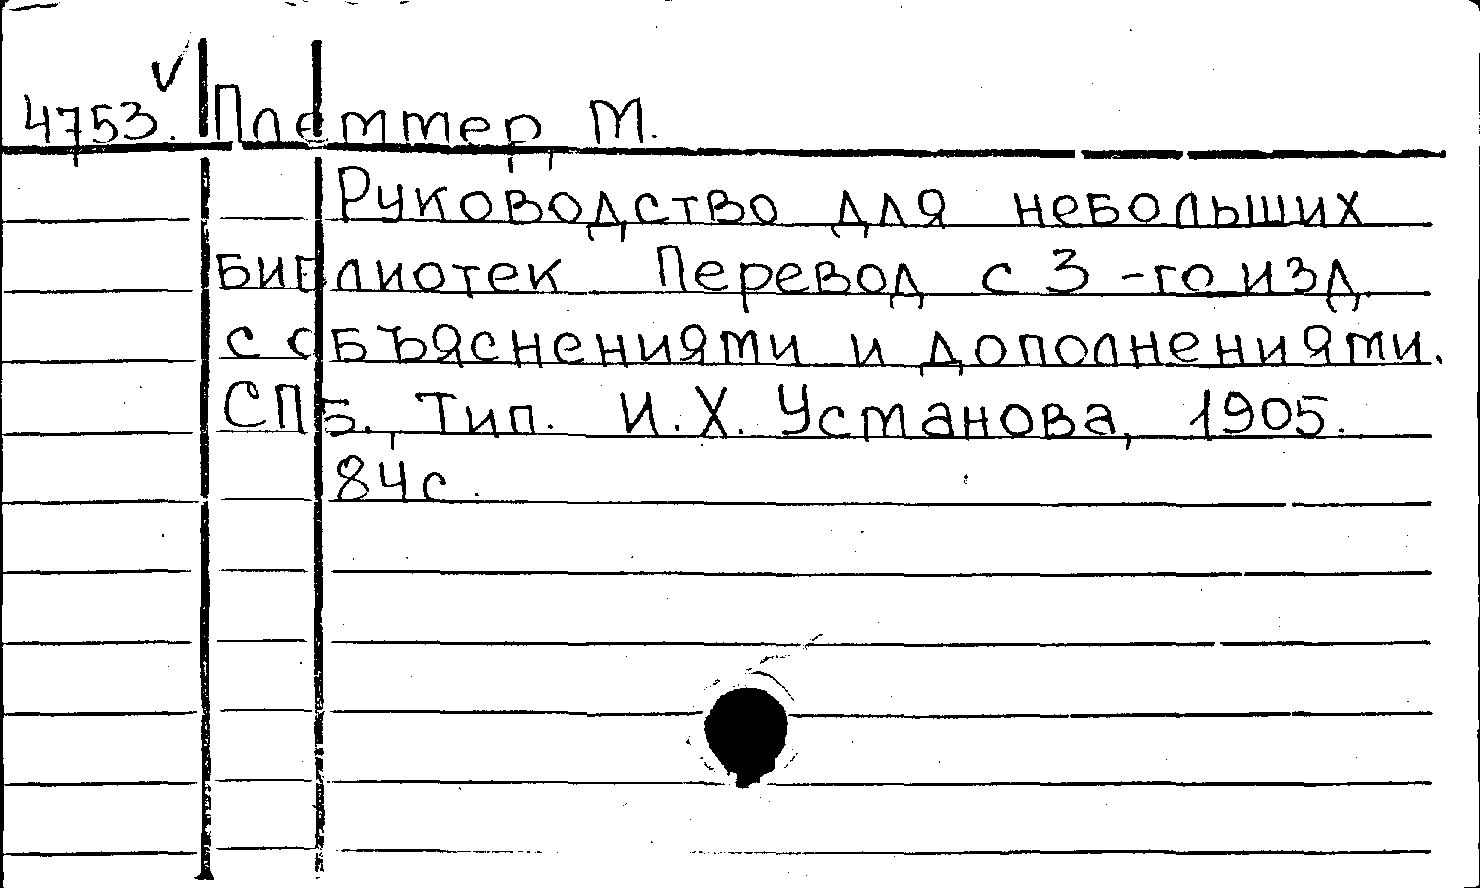 4753. Плеттер, М.
Руководство для небольших
библиотек Перевод с 3-го изд.
с объяснениями и дополнениями.
СПБ., Тип. И.Х. Усманова, 1905.
84с.